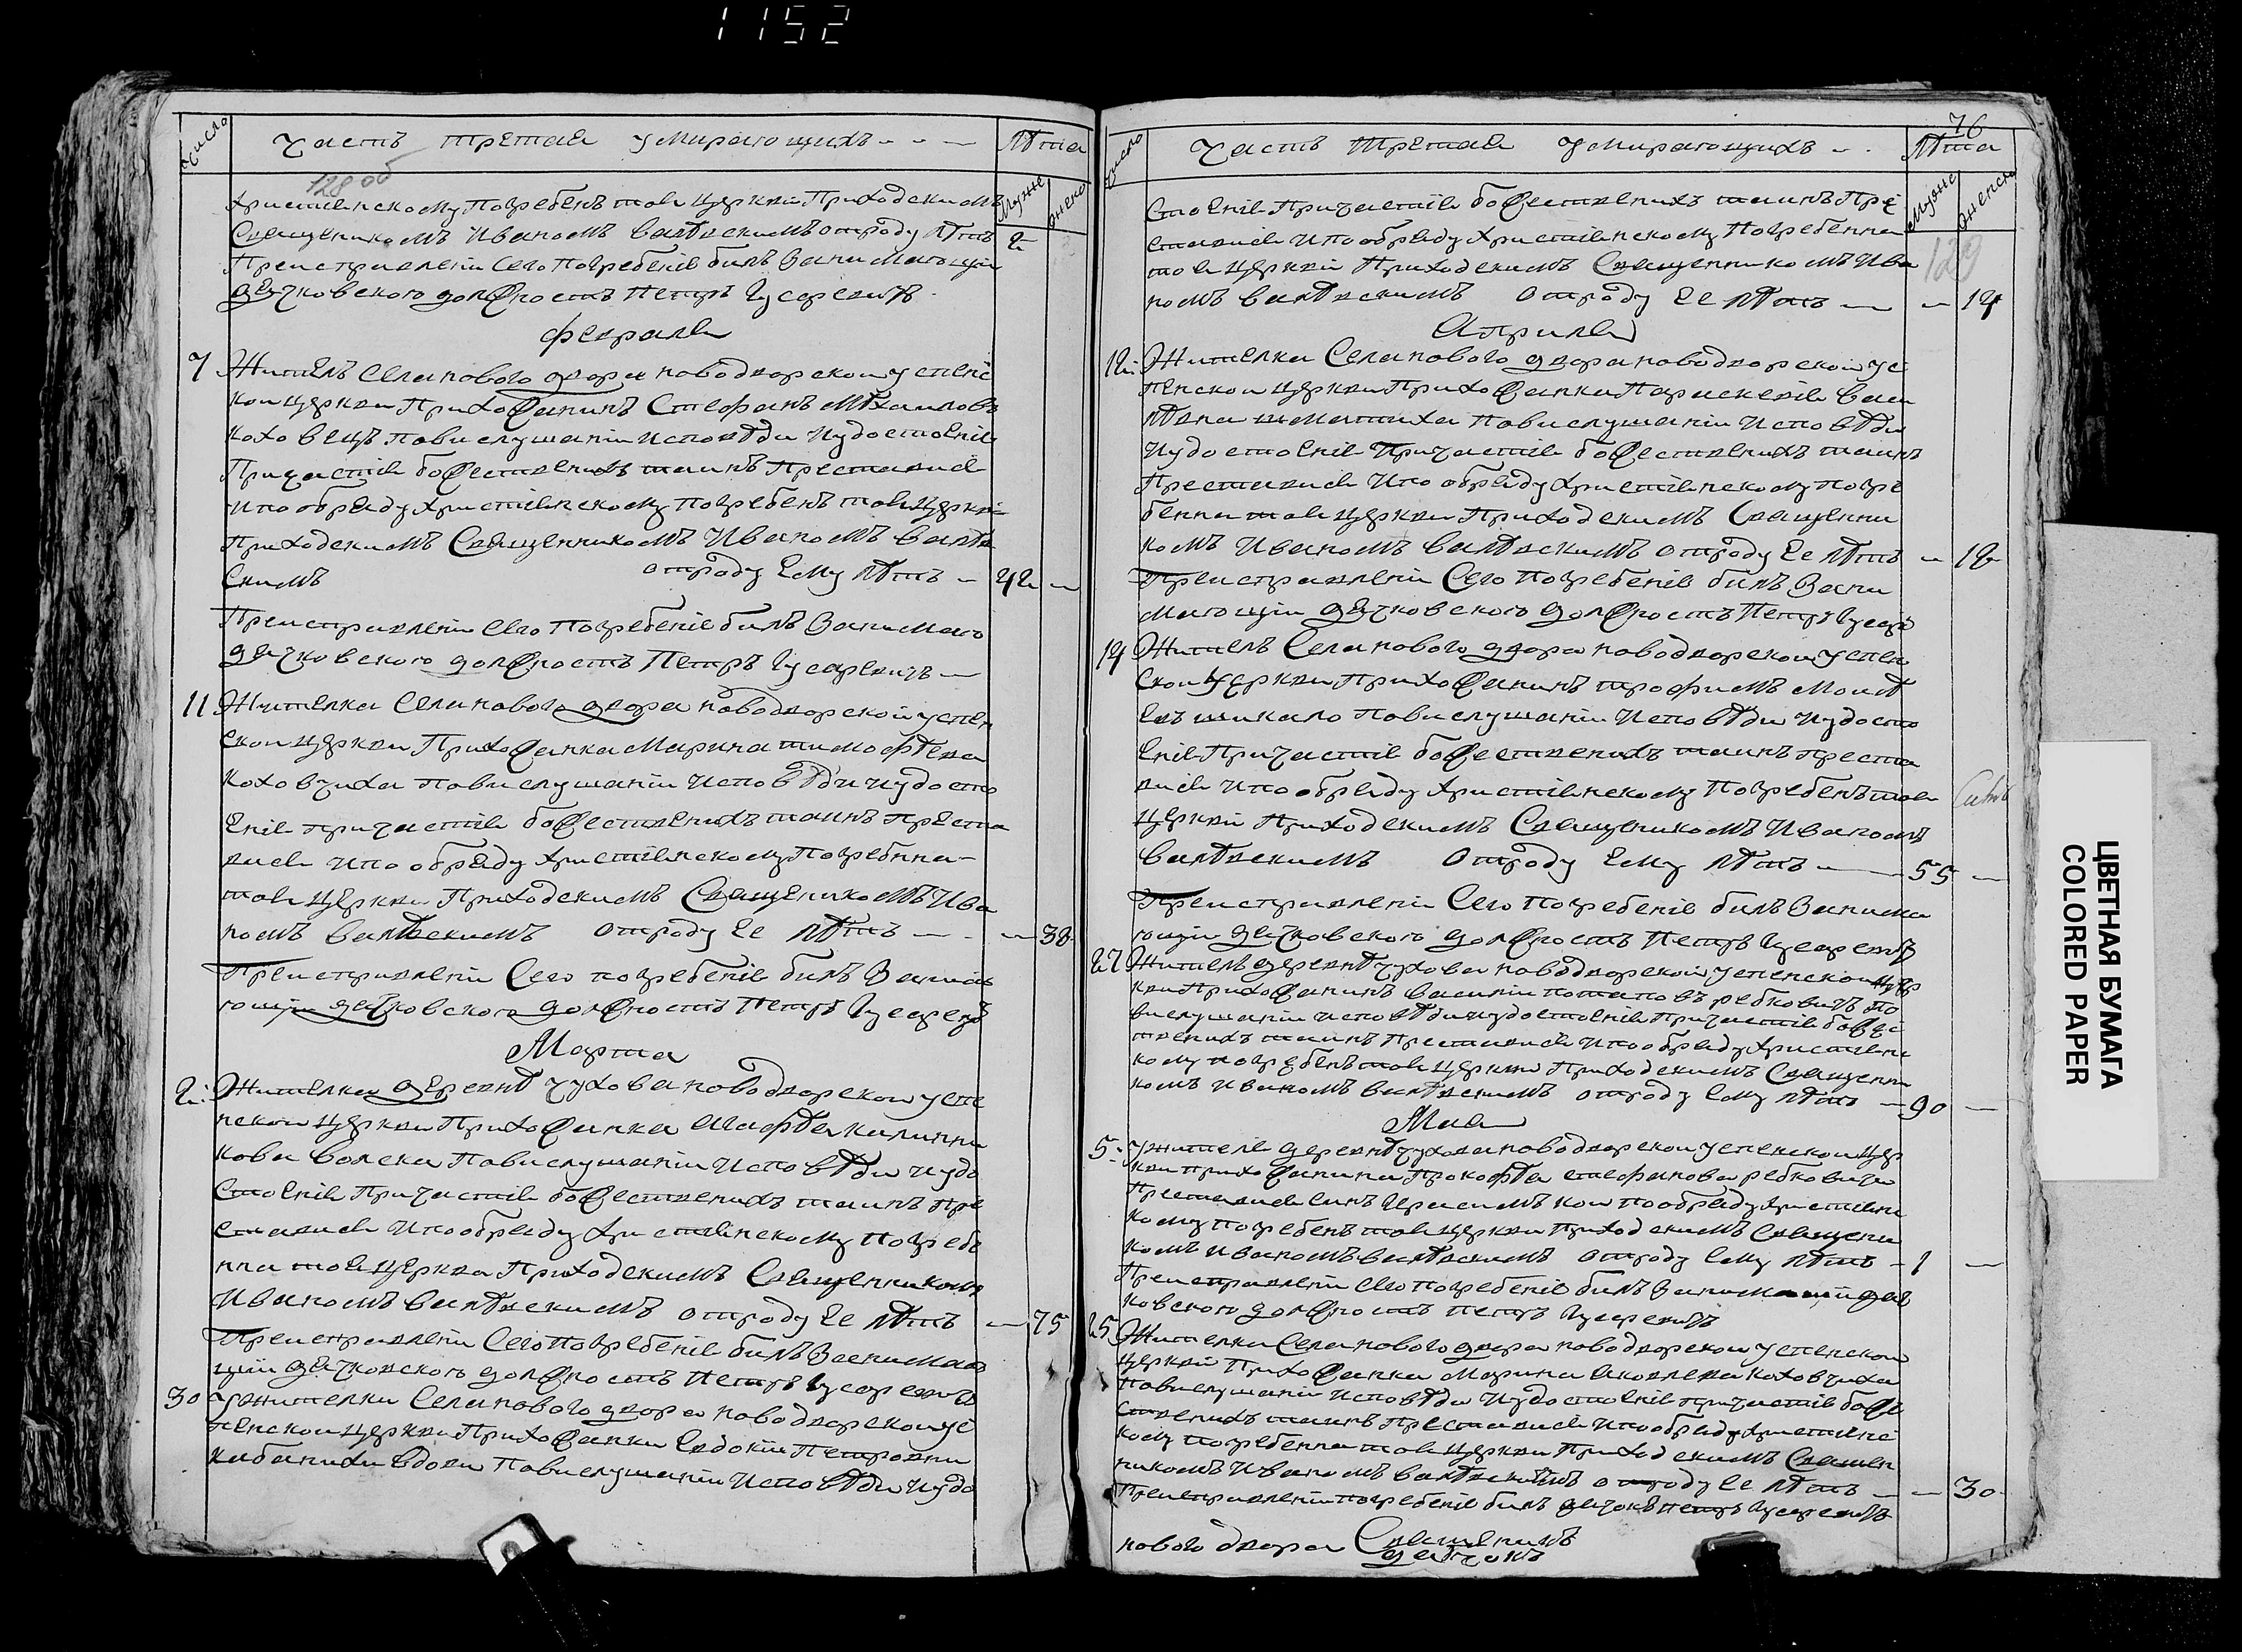 1152
число
Часть третая умирающихъ
Лѣта
128 об
муже
женс
христіянскому погребенъ тоя церкви приходскимъ
Священикомъ Иваномъ отроду лѣтъ 2
Преисправленіи сего погребенія билъ занимающій
дячковского должность Петръ Гусаревичъ
Февраля
7 Житель села нового двора новодворской успенс
кои церкви прихожанинъ Стефанъ Михаиловъ
Коховецъ повислушаніи исповѣди иудостоенія
Причастія божественихъ таинъ преставися
ипообряду христіянскому погребенъ тоя церкви
приходскимъ Священникомъ Иваномъ
скимъ отроду ему лѣтъ 42
Преисправленіи сего погребенія билъ занимаю
дячковского должность Петръ Гусаревичъ
11 Жителка села нового двора новодворской успен
скои церкви прихожанка Марина тимофѣева
Коховчиха повислушаніи исповѣди иудосто
енія причастія божественихъ таинъ преста
вися ипообряду христіянскому погребнна
тоя церкви приходскимъ Священикомъ Ива
номъ отроду ее лѣтъ 38
Преисправленіи сего погребенія билъ занима
ющіи дячковского должность Петръ Гусаревъ
Марта
2 Жителка деревнѣ чухова новодворской успе
нской церкви прихожанка Агафѣя калинни
кова повислушаніи исповѣди иудо
стоенія причастія божественихъ таинъ пре
ставися ипообряду христіянскому погребе
нна тоя церкви приходскимъ Священникомъ
Иваномъ отроду ее лѣтъ 75
Преисправленіи сего погребенія билъ занимаю
щіи дячковского должность Петръ Гусаревичъ
30 Ужителки села нового двора новодворской ус
пенской церкви прихожанки Евдокіи Петровни
Кабанихи вдови повислушаніи исповѣди иудо
76
число
Часть третая умирающихъ
Лѣта
муже
женск
129
стоенія причастія божественихъ таинъ пре
ставися ипообряду христіянскому погребенна
тоя церкви приходскимъ Священникомъ Ива
номъ отроду ее лѣтъ 14
Априля
12 Жителка села нового двора новодворской ус
пенской церкви прихожанка Параскевія
повислушаніи исповѣди
иудостоенія причастія божественихъ таинъ
Преставися ипообряду христіянскому погре
бенна тоя церкви приходскимъ Священни
комъ Иваномъ отроду ее лѣтъ 12
Преисправленіи сего погребенія билъ зани
мающіи дячковского должность Петръ Гусаре
14 Житель села нового двора новодворской успен
скои церкви прихожанинъ трофимъ Моисѣ
евъ шикало повислушаніи исповѣди иудосто
енія причастія божественихъ таинъ преста
вися ипообряду христіянскому погребенъ тоя
церкви приходскимъ Священикомъ Иваномъ
отроду ему лѣтъ 55
Преисправленіи сего погребенія билъ занима
ющіи дячковского должность Петръ Гусаревичъ
27 Житель деревнѣ чухова новодворской успенской цер
кви прихожанинъ василіи потаповъ ребковичъ по
вислушаніи исповѣди иудостоенія причастія божес
твенихъ таинъ преставися ипообряду христіянс
кому погребенъ тоя церкви приходскимъ Священни
комъ Иваномъ отроду ему лѣтъ 90
Мая
5 Ужителя деревнѣ чухова новодворской успенской цер
кви прихожанина Прокофѣя стефанова ребковича
преставися синъ Герасимъ кои пообряду христіянс
кому погребенъ тоя церкви приходскимъ Священи
комъ Иваномъ отроду ему лѣтъ 1
Преисправленіи сего погребенія билъ занимающіи дяч
ковского должность Петръ Гусаревичъ
25 Жителка села нового двора новодворской успенской
церкви прихожанка Марина Яковлева коховчиха
повислушаніи исповѣди иудостоенія причастія боже
ственихъ таинъ преставися ипообряду христіянс
кому погребенна тоя церкви приходскимъ Священ
никомъ Иваномъ отроду ее лѣтъ 30
Преисправленіи погребенія билъ дячокъ Петръ Гусаревичъ
нового двора Священикъ
дячокъ
ЦВЕТНАЯ БУМАГА
COLORED PAPER